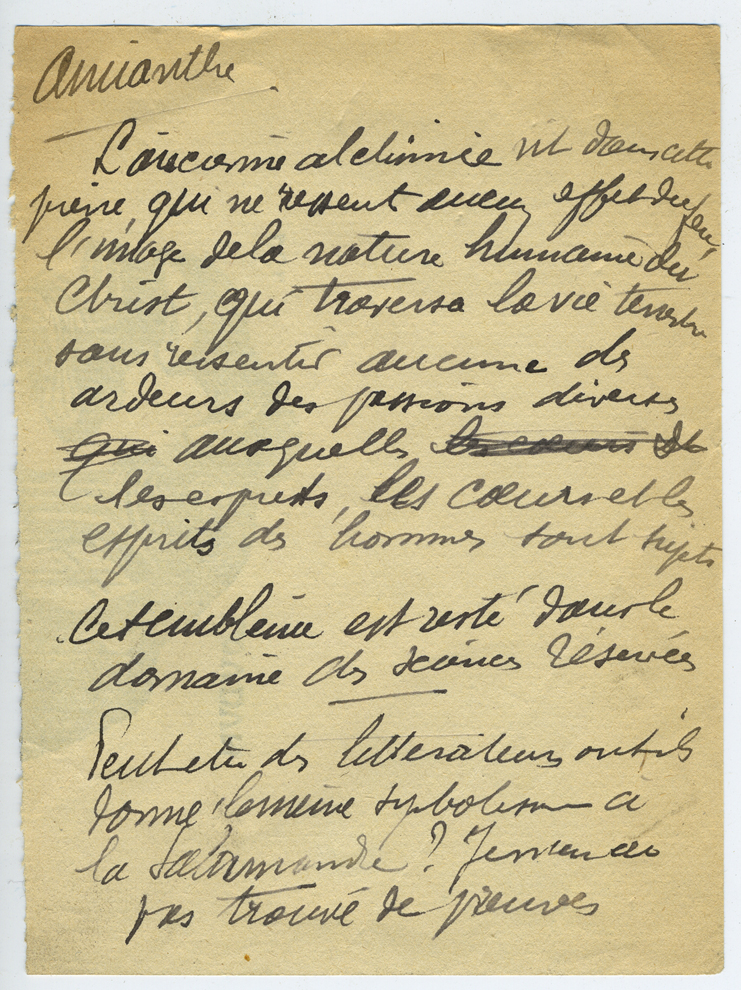 Amianthe
L'ancienne alchimie vit dans cette
pierre, qui ne ressent aucun effet du feu,
l'image de la nature humaine du
Christ, qui traversa la vie terrestre
sans ressentir aucune des
ardeurs des passions diverses
qui auxquelles les cœurs et
les esprits, les cœurs et les
esprits des hommes sont sujets
Cet emblème est resté dans le
domaine des sciences réservées
Peut être des littérateurs ont ils
donné le même symbolisme à
la Salamandre? Je n'en ai
pas trouvé de preuves